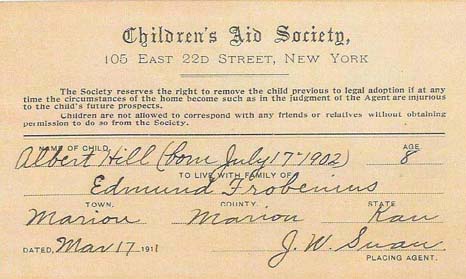 Children's Aid Society,
105 EAST 22D STREET, NEW YORK
The Society reserves the right to remove the child previous to legal adoption if at any
time the circumstances of the home become such as in the judgment of the Agent are injurious
to the child's future prospects.
Children are not allowed to correspond with any friends or relatives without obtaining
permission to do so from the Society.
NAME OF CHILD. AGE
Albert Hill (born July 17-1902) 8
TO LIVE WITH FAMILY OF
Edmund Frobenius
TOWN. COUNTY. STATE
Marion Marion Kan
DATED, Mar 17 1911 J. W. Swan
PLACING AGENT.